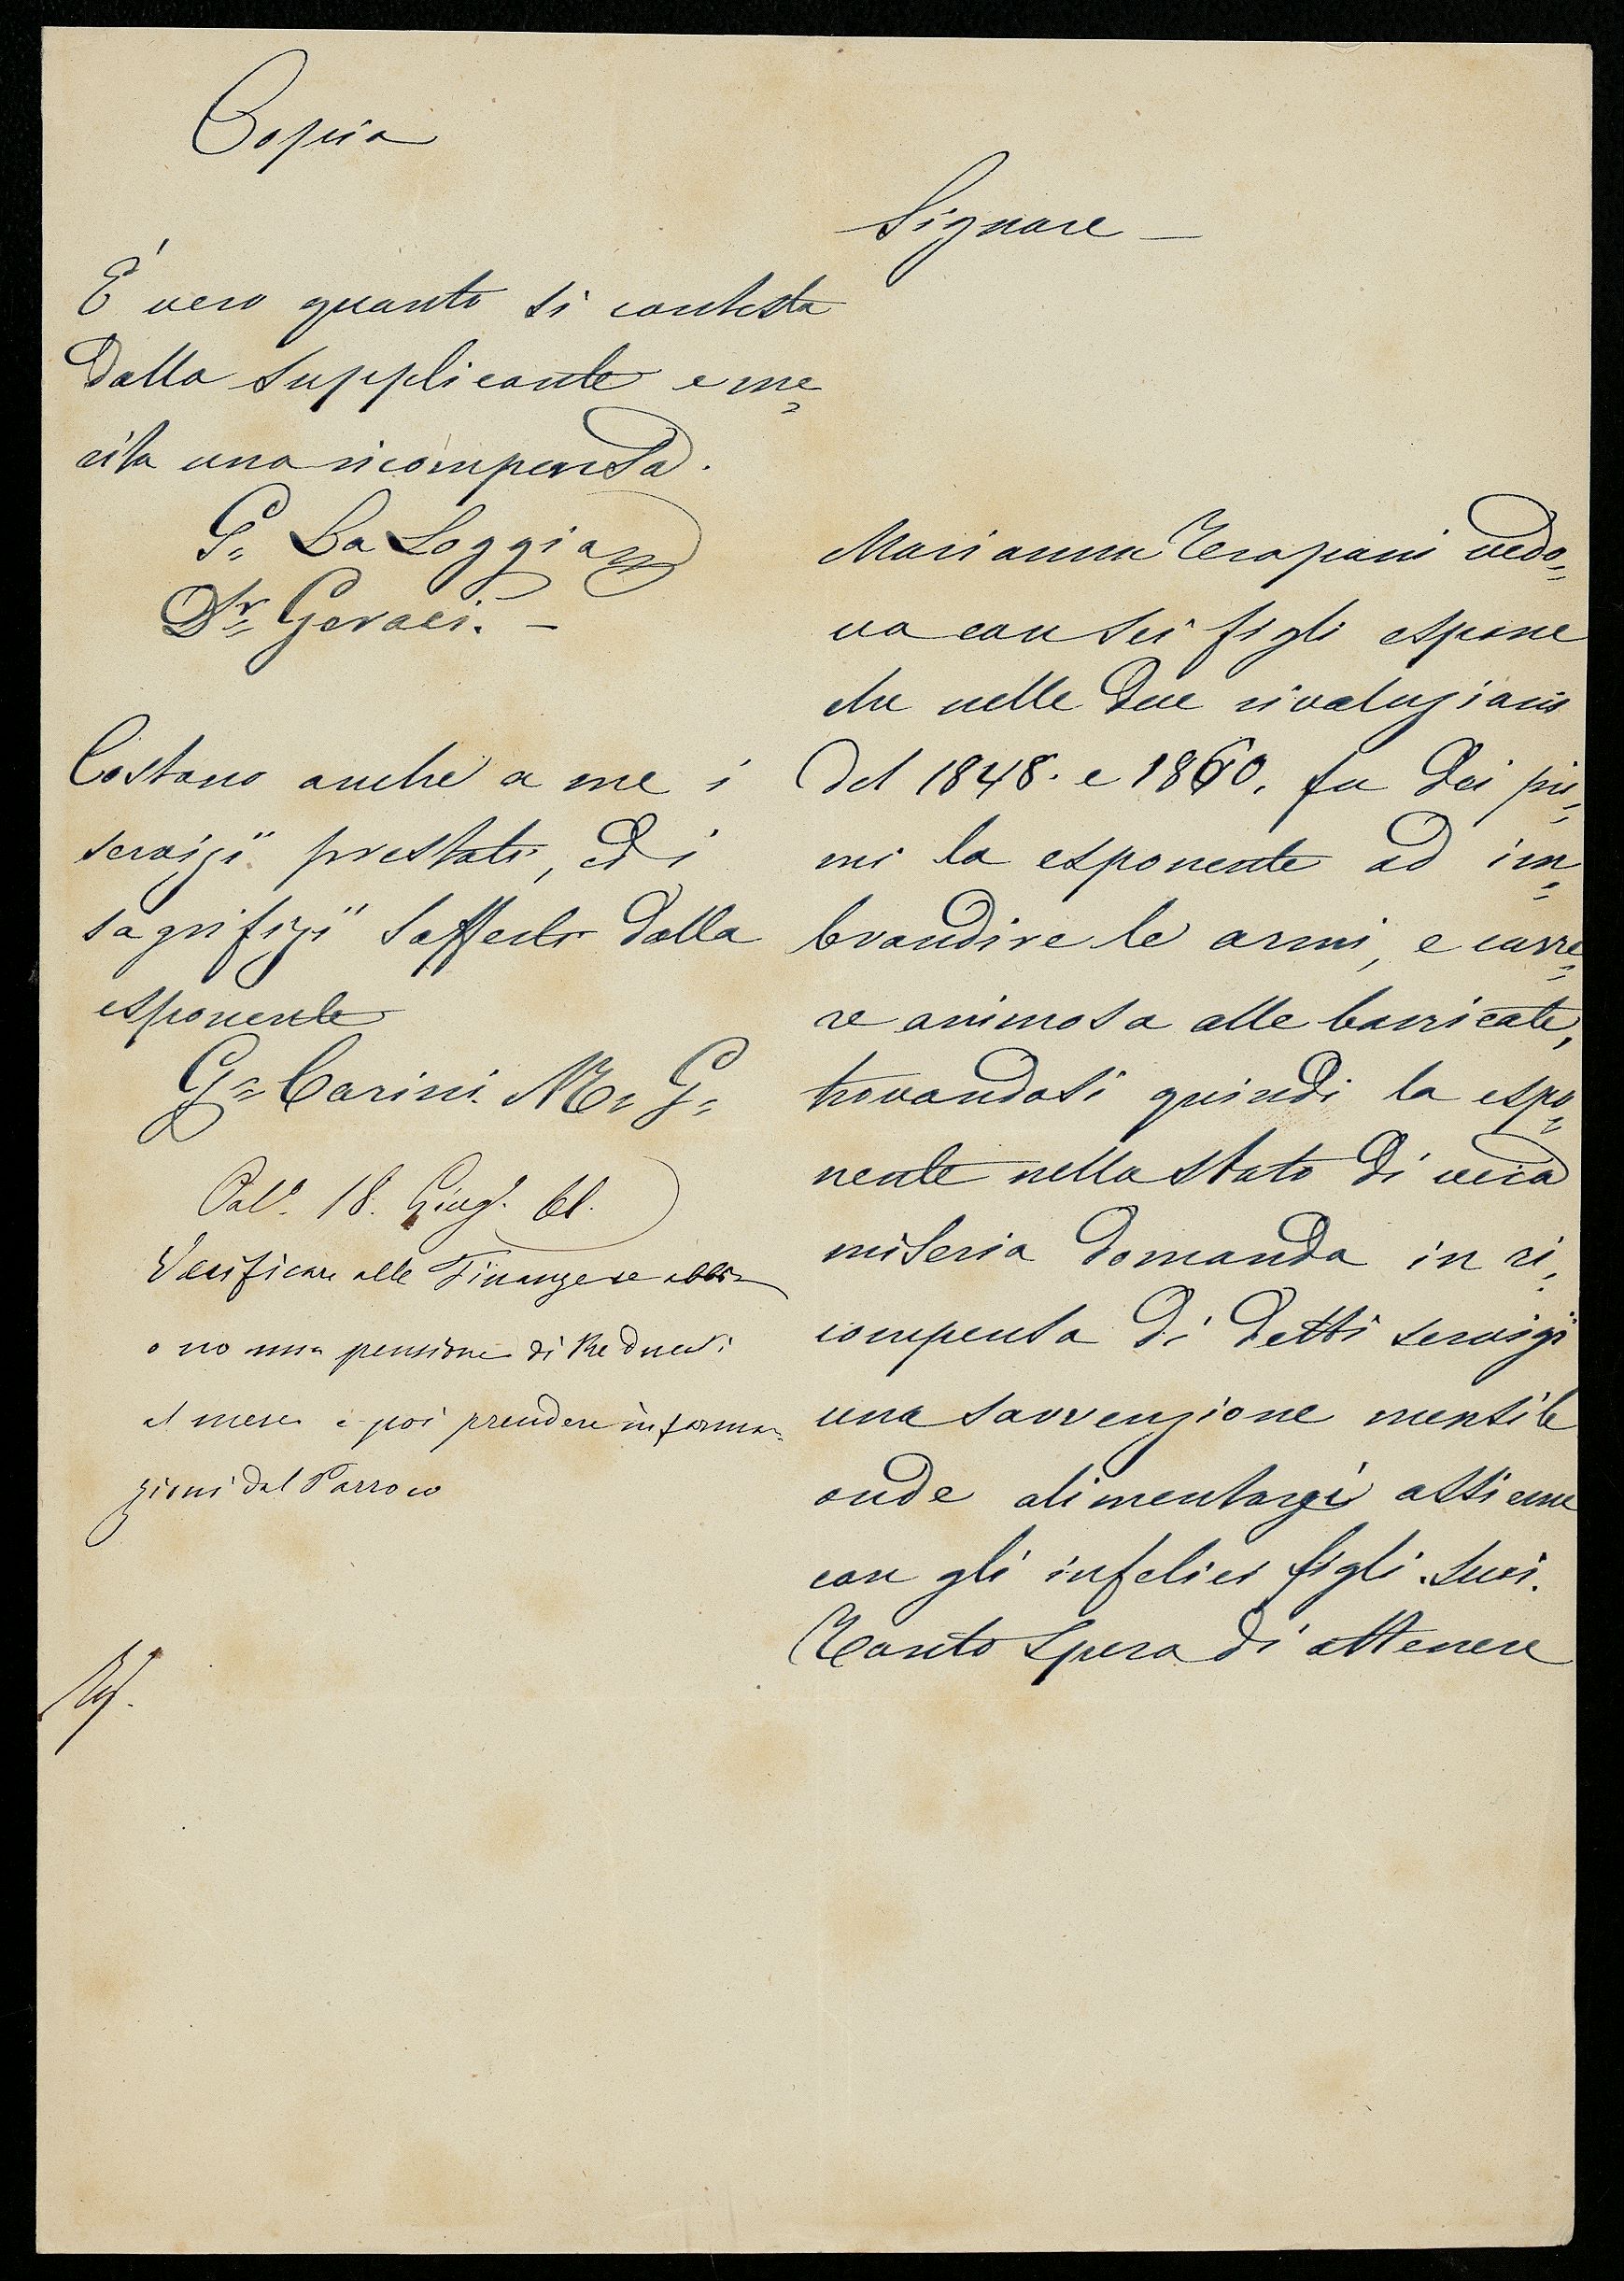 Copia
È vero quanto si contesta
dalla supplicante e me=
rita una ricompensa.
G. La Loggia
Dr. Geraci. –
Costano anche a me i
servizii prestati, ed i
sagrifizii sofferti dalla
esponente
G= Carini. M= G=
Pal.o 18. Giug.o 61.
Verificare alle Finanze se abbia
o no una pensione di tre ducati
al mese e poi prendere informa=
zioni dal Parroco
Signore –
Marianna Trapani vedo=
va con sei figli espone
che nelle due rivoluzioni
del 1848. e 1860. fu dei pri=
mi la esponente ad im=
brandire le armi, e corre=
re animosa alle barricate,
trovandosi quindi la espo=
nente nello stato di vera
miseria domanda in ri=
compensa di detti servigi
una sovvenzione mensile
onde alimentarsi assieme
con gli infelici figli suoi.
Tanto spera di ottenere